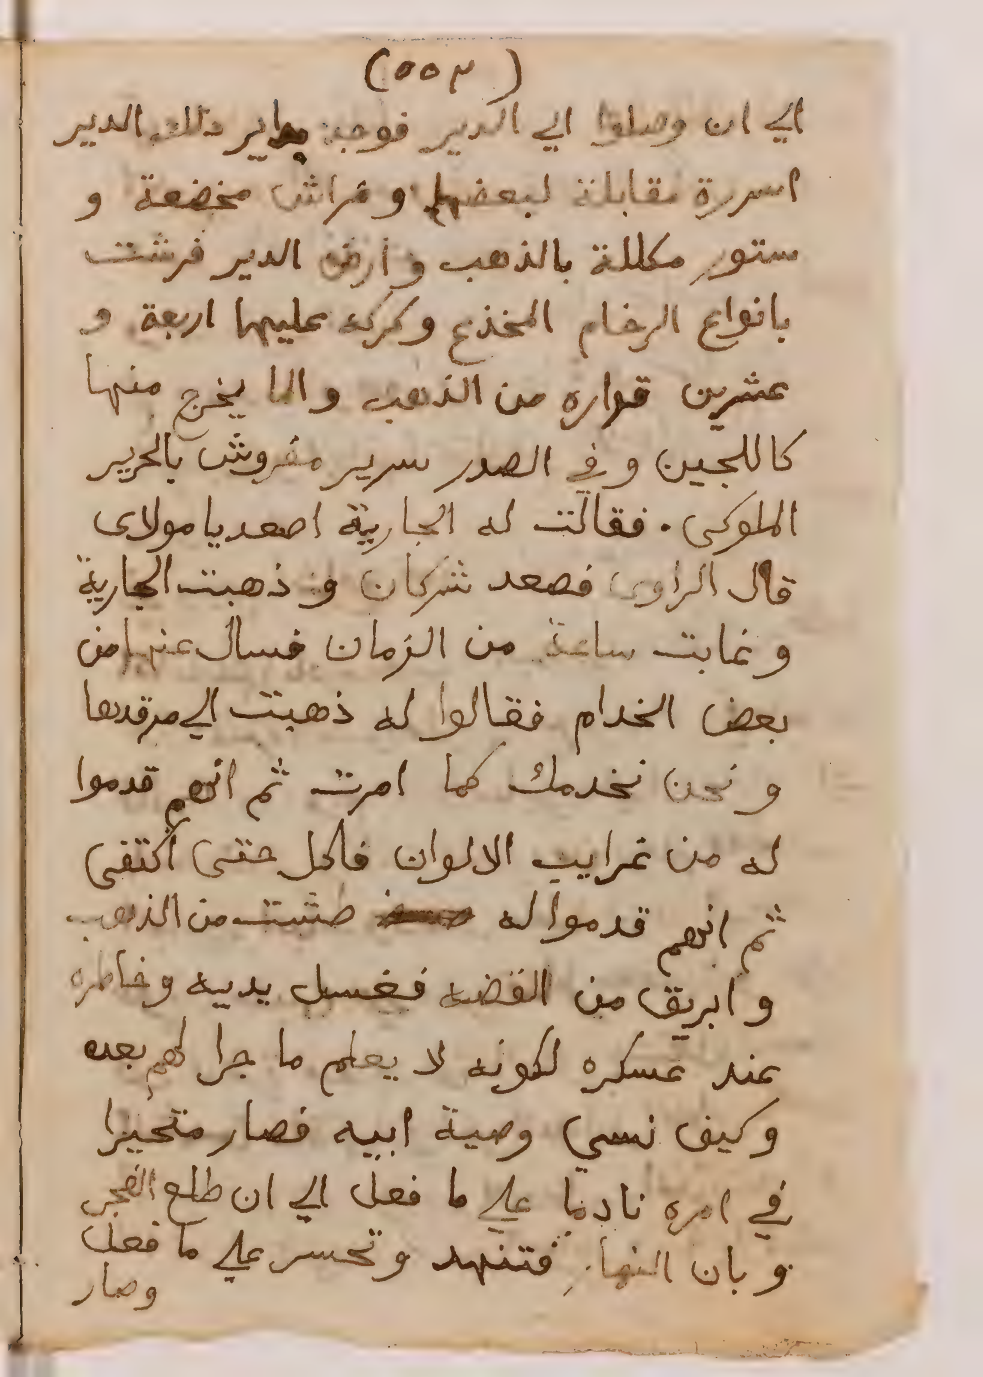 (٥٥٣)
الي ان وصلوا الي الدير فوجد بداير ذلك الدير
اسررة مقابلة لبعضها و فراش مخضعة و
ستور مكللة بالذهب و ارض الدير فرشت
بانواع الرخام المخذع وكركه عليها اربعة و
عشرين قواره من الذهب والما يخرج منها
كاللجين وفي الصدر سرير مفروش بالحرير
الملوكى . فقالت له الجارية اصعد يا مولاى
قال الراوى فصعد شركان و ذهبت الجارية
و غابت ساعة من الزمان فسال عنها من
بعض الخدام فقالوا له ذهبت الي مرقدها
و نحن نخدمك كما امرت ثم انهم قدموا
له من غرايب الالوان فاكل حتى أكتفى
ثم انهم قدموا له طشت من الذهب
و ابريق من الفضه فغسل يديه وخاطره
عند عسكره لكونه لا يعلم ما جرا لهم بعده
وكيف نسي وصية ابيه فصار متحيرا
في امره نادما علي ما فعل الي ان طلع الفجر
و بان النهار فتنهد وتحسر علي ما فعل
وصار